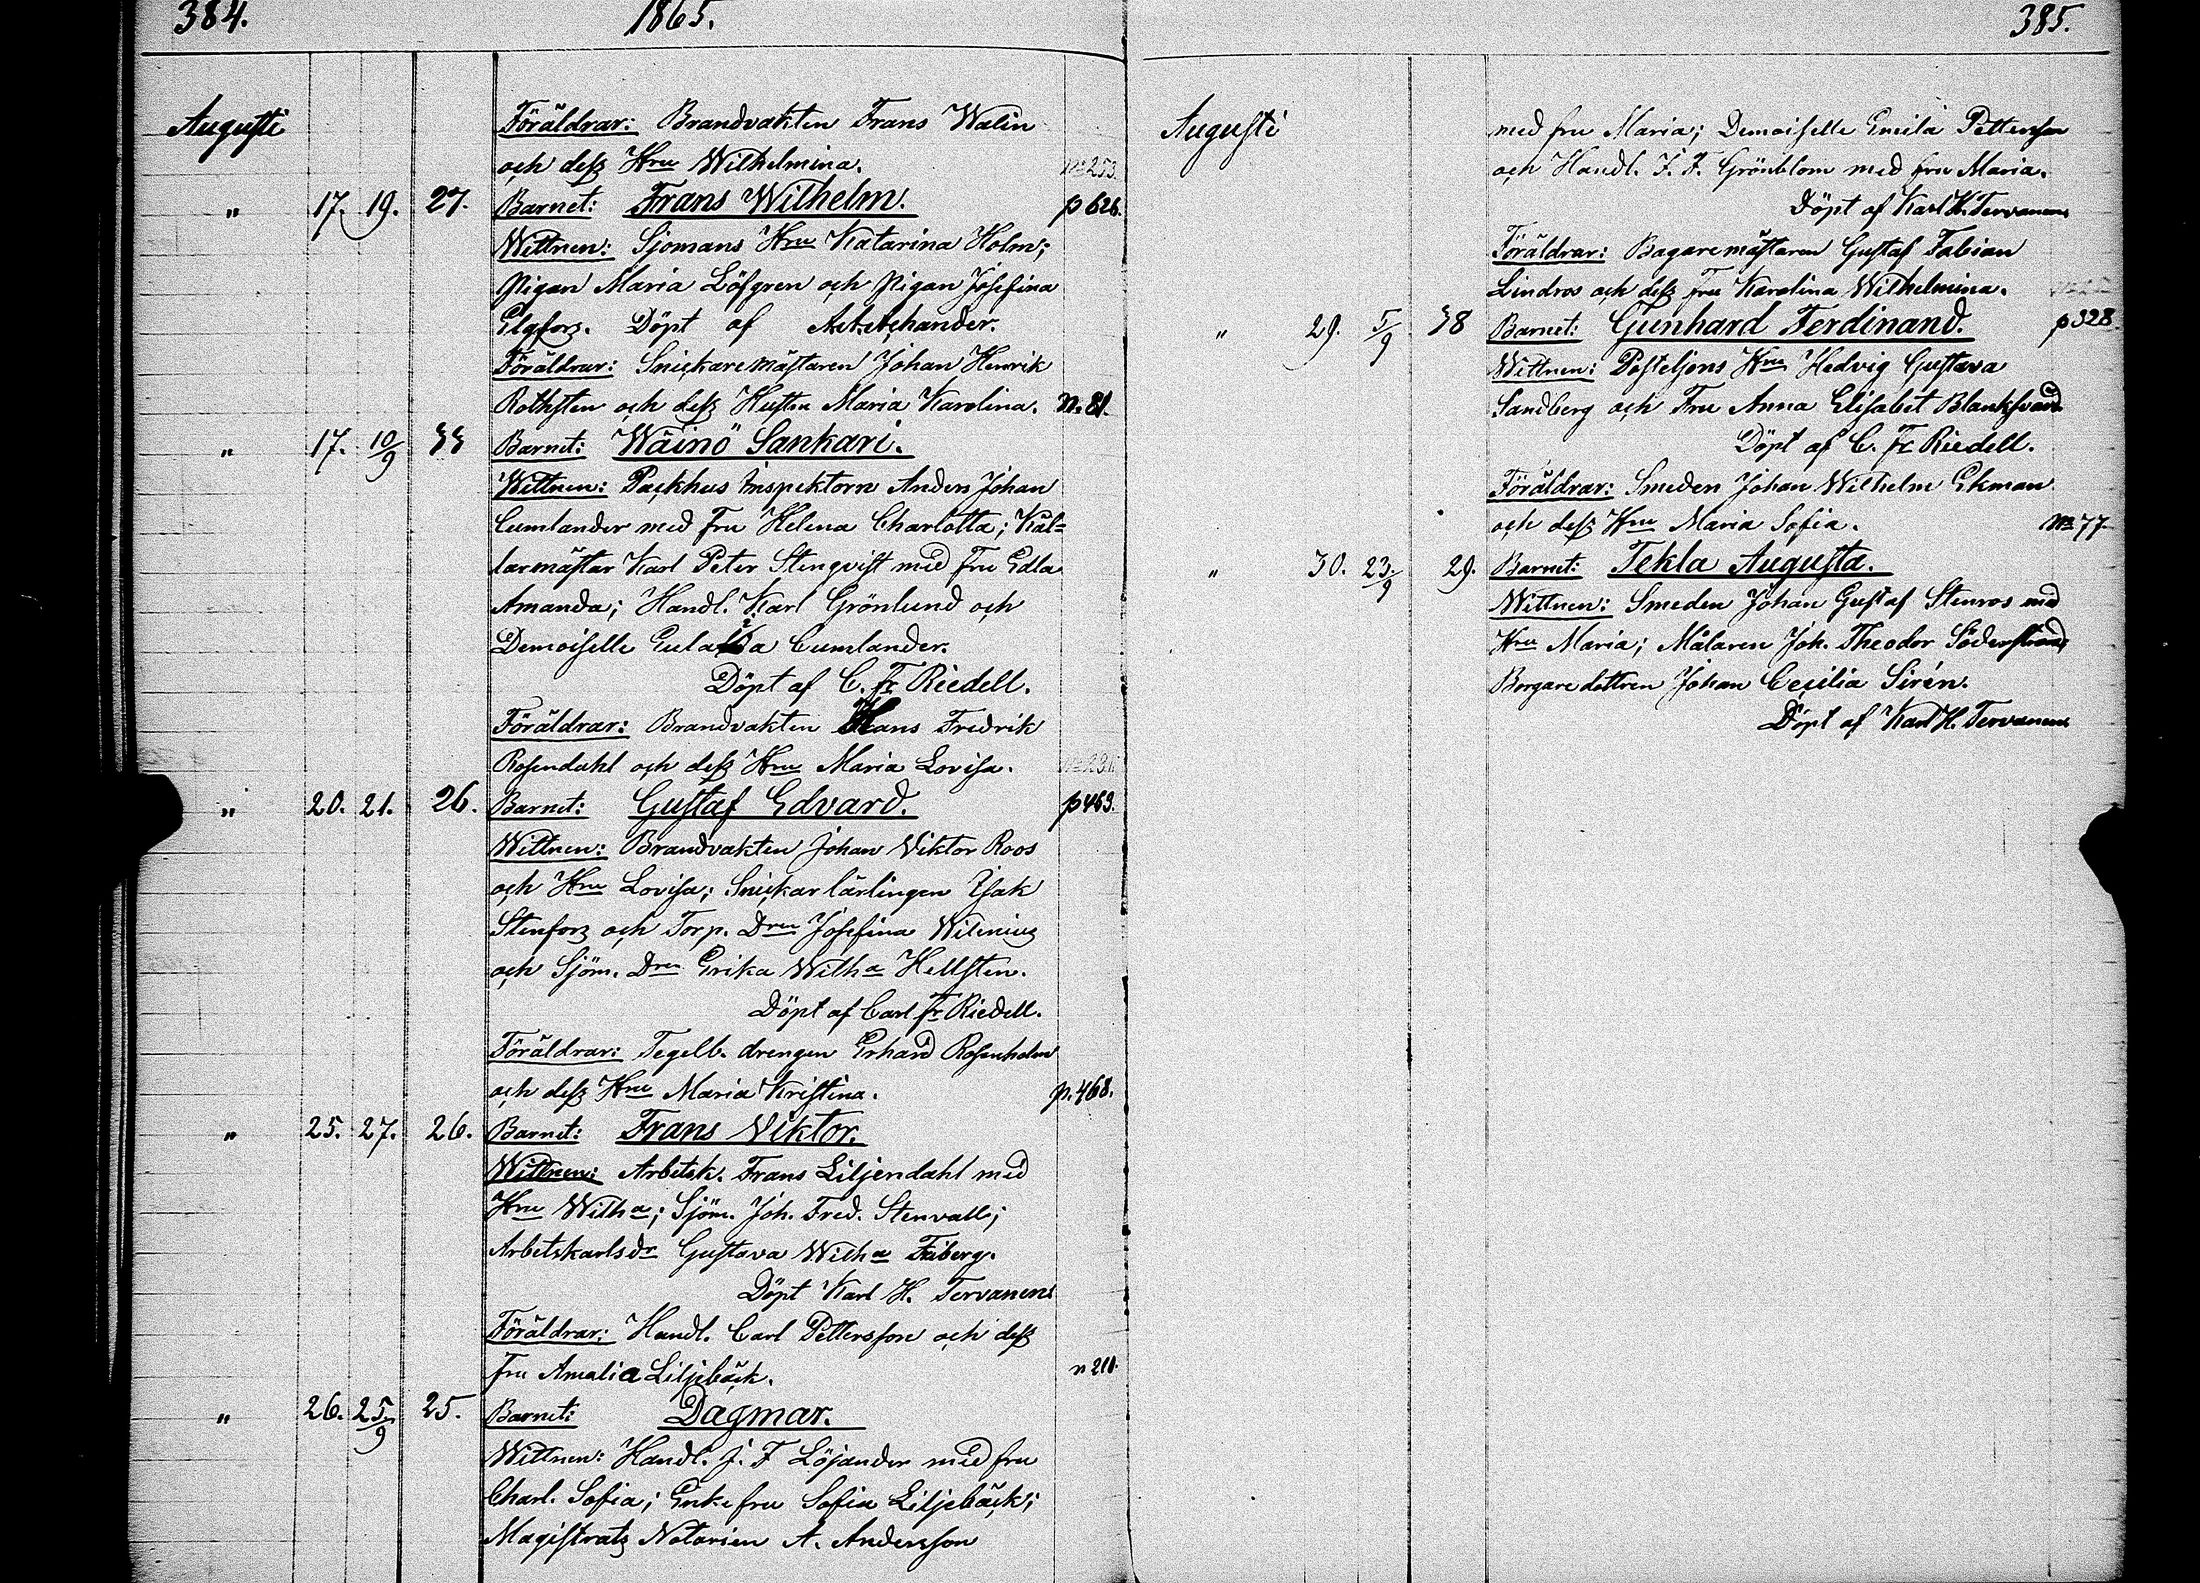 384.
1865.
Augusti
Föräldrar: Brandvakten Frans Walin
och dess Hru Wilhelmina. No 253.
" 17. 19. 27. Barnet: Frans Wilhelm. p 626.
Wittnen: Sjömans Hru Katarina Holm;
Pigan Maria Löfgren och Pigan Josefina
Elgfors. Döpt af
Föräldrar: Snickaremästaren Johan Henrik
Rothsten och dess Hustru Maria Karolina. n. 81.
" 17. 10/9 33 Barnet: Wäinö Sankari.
Wittnen: Packhus Inspektorn Anders Johan
Cumlander med Fru Helena Charlotta; Käl-
larmästar Karl Peter Stenqvist med Fru Edla
Amanda; Handl. Karl Grönlund och
Demoiselle Cumlander.
Döpt af C. Fr Riedell.
Föräldrar: Brandvakten Hans Fredrik
Rosendahl och dess Hru Maria Lovisa.
" 20. 21. 26. Barnet: Gustaf Edvard. p 463.
Wittnen: Brandvakten Johan Viktor Roos
och Hru Lovisa; Snickar lärlingen Isak
Stenfors och Torp. Dren Josefina Wilenius
och Sjöm. Dren Erika Wilha Hellsten.
Döpt af Carl Fr Riedell.
Föräldrar: Tegelb. drengen Erhard Rosenholm
och dess Hru Maria Kristina. p. 468.
" 25. 27. 26. Barnet: Frans Viktor.
Wittnen: Arbetsk. Frans Liljendahl med
Hru Wilha; Sjöm. Joh. Fred. Stenvall;
Arbetskarlsdr Gustava Wilha Friberg.
Döpt Karl H. Tervanens
Föräldrar: Handl. Carl Pettersson och dess
fru Amalia Liljebäck. n 210.
" 26. 25/9 25. Barnet: Dagmar.
Wittnen: Handl. J. F Löjander med fru
Charl. Sofia; Enkefru Sofia Liljebäck;
Magistrats Notarien A. Andersson
385.
Augusti
med fru Maria; Demoiselle Emila Pettersson
och Handl. J. F. Grönblom med fru Maria.
Döpt af Karl H. Tervanens
Föräldrar: Bagaremästaren Gustaf Fabian
Lindros och dess fru Karolina Wilhelmina.
" 29. 5/9 38 Barnet: Gunhard Ferdinand. p 328
Wittnen: Posteljons Hru Hedvig Gustava
Sandberg och Fru Anna Elisabet Blanksvärd
Döpt af C. Fr Riedell.
Föräldrar: Smeden Johan Wilhelm Ekman
och dess Hru Maria Sofia. No 77.
" 30. 23./9 29. Barnet: Tekla Augusta.
Wittnen: Smeden Johan Gustaf Stenros med
Hru Maria; Målaren Joh. Theodor Söderstrand,
Borgaredottren Johan Cecilia Sirén.
Döpt af Karl H. Tervanens